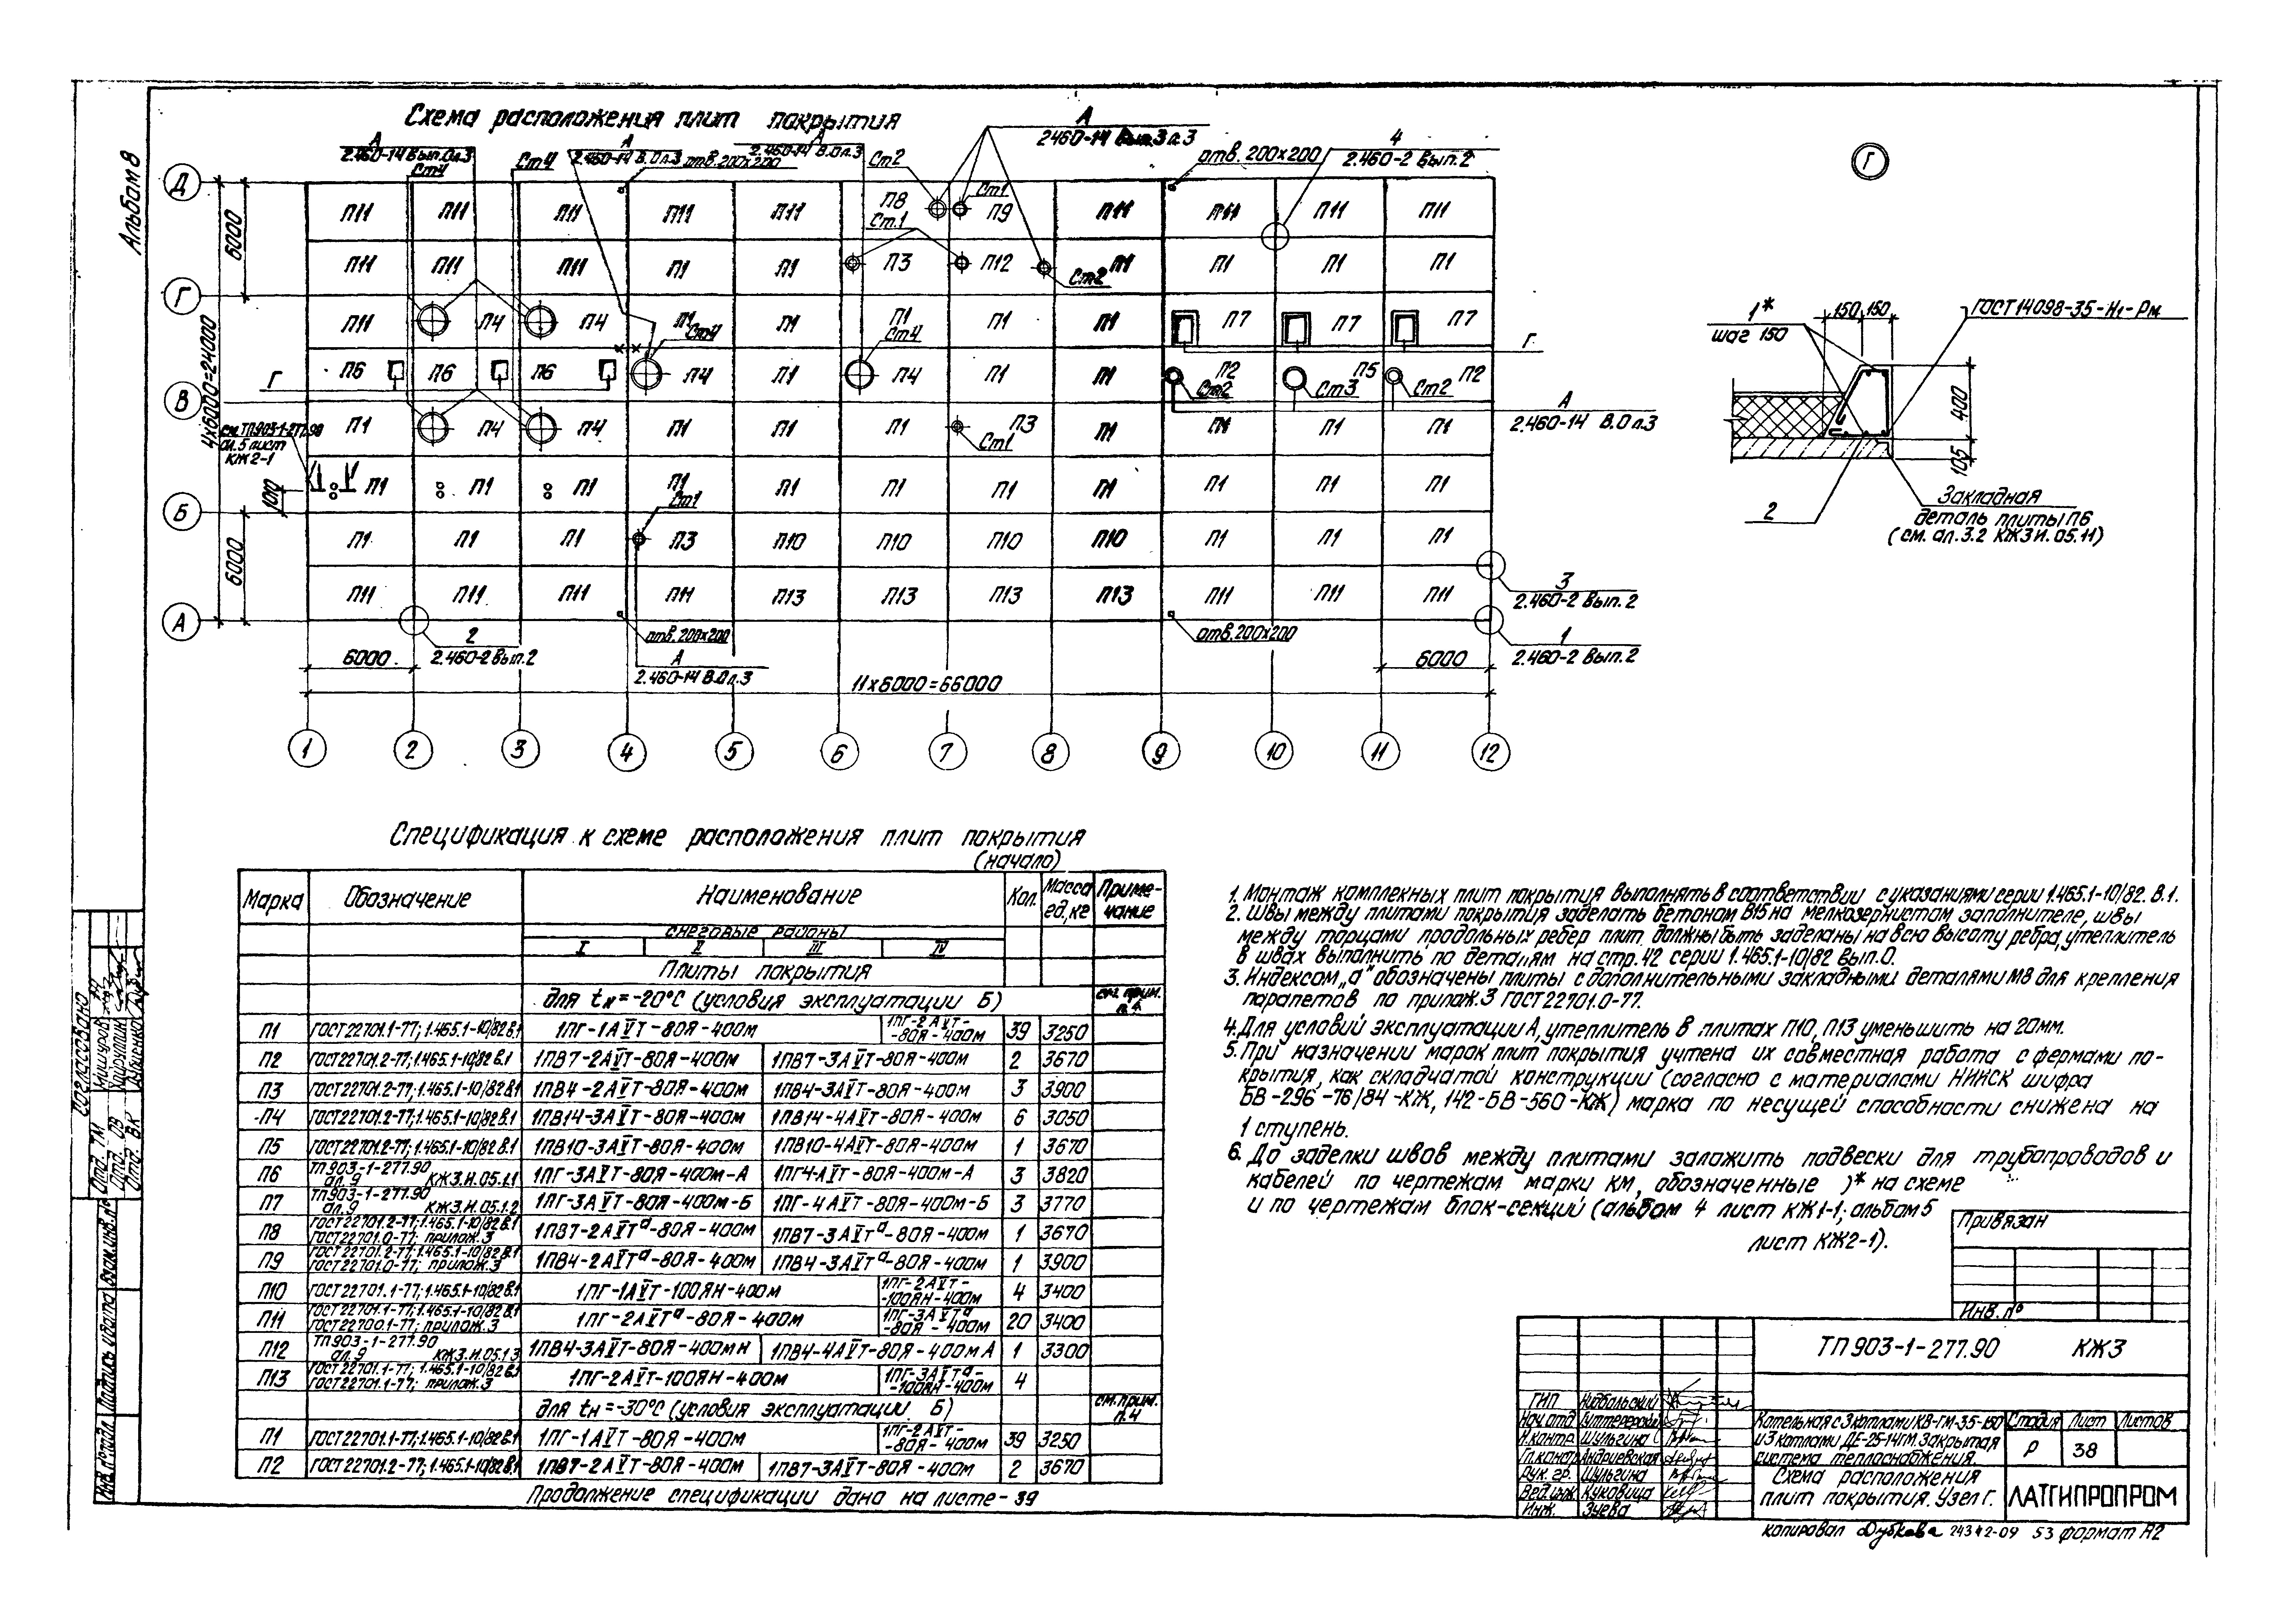 Альбом 8
Схема расположения плит покрытия
А
2.460-14 Вып.0л.3
Ст4
Ст4
А
2.460-14 В.0л.3
отв.200х200
А
2.460-14 В.0л.3
Ст2
Ст1
А
2460-14 Вып.3л.3
отв.200х200
4
2.460-2 Вып.2
Г
Д
Г
В
Б
А
6000
4х6000=24000
6000
1010
см.ТП903-1-277.90
ал.5 лист
КЖ2-1
П11 П11 П11 П11 П11 П8 П9 П11 П11 П11 П11
Ст.1
П11 П11 П11 П1 П1 П3 П12 П1 П1 П1 П1
Ст2
П11 П4 П4 П1 П1 П1 П1 П1 П7 П7 П7
Ст4
Ст4
Г
П6 П6 П6 П4 П1 П4 П1 П1 П2 П5 П2
Г
Ст2 Ст3 Ст2
П1 П4 П4 П1 П1 П1 П3 П1 П1 П1 П1
Ст1
А
2.460-14 В.0л.3
П1 П1 П1 П1 П1 П1 П1 П1 П1 П1 П1
Ст1
П1 П1 П1 П3 П10 П10 П10 П10 П1 П1 П1
П11 П11 П11 П11 П13 П13 П13 П13 П11 П11 П11
3
2.460-2 Вып.2
1
2.460-2 Вып.2
2
2.460-2 Вып.2
отв.200х200
А
2.460-14 В.0л.3
отв.200х200
6000
6000
11х6000=66000
1 2 3 4 5 6 7 8 9 10 11 12
1*
шаг 150
150 150
ГОСТ14098-35-Н1-Рм
400
105
2
Закладная
деталь плиты П6
(см. ал.3.2 КЖ3И.05.11)
Спецификация к схеме расположения плит покрытия
(начало)
Марка Обозначение Наименование Кол. Масса ед,кг Примечание
снеговые районы
I II III IV
Плиты покрытия
для tн=-20°С (условия эксплуатации Б) см. прим. п.4
П1 ГОСТ22701.1-77; 1.465.1-10/82 В.1 1ПГ-1АVТ-80Я-400м 1ПГ-2АVТ--80Я-400м 39 3250
П2 ГОСТ22701.2-77; 1.465.1-10/82 В.1 1ПВ7-2АVТ-80Я-400м 1ПВ7-3АVТ-80Я-400м 2 3670
П3 ГОСТ22701.2-77; 1.465.1-10/82 В.1 1ПВ4-2АVТ-80Я-400м 1ПВ4-3АVТ-80Я-400м 3 3900
П4 ГОСТ22701.2-77; 1.465.1-10/82 В.1 1ПВ14-3АVТ-80Я-400м 1ПВ14-4АVТ-80Я-400м 6 3050
П5 ГОСТ22701.2-77; 1.465.1-10/82 В.1 1ПВ10-3АVТ-80Я-400м 1ПВ10-4АVТ-80Я-400м 1 3670
П6 ТП903-1-277.90 ал.9 КЖ3.И.05.1.1 1ПГ-3АVТ-80Я-400м-А 1ПГ4-АVТ-80Я-400м-А 3 3820
П7 ТП903-1-277.90 ал.9 КЖ3.И.05.1.2 1ПГ-3АVТ-80Я-400м-Б 1ПГ-4АVТ-80Я-400м-Б 3 3770
П8 ГОСТ22701.2-77; 1.465.1-10/82 В.1 ГОСТ22701.0-77; прилож.3 1ПВ7-2АVТа-80Я-400м 1ПВ7-3АVТа-80Я-400м 1 3670
П9 ГОСТ22701.2-77; 1.465.1-10/82 В.1 ГОСТ22701.0-77; прилож.3 1ПВ4-2АVТа-80Я-400м 1ПВ4-3АVТа-80Я-400м 1 3900
П10 ГОСТ22701.1-77; 1.465.1-10/82 В.1 1ПГ-1АVТ-100ЯН-400м 1ПГ-2АVТ--100ЯН-400м 4 3400
П11 ГОСТ22701.1-77; 1.465.1-10/82 В.1 ГОСТ22700.1-77; прилож.3 1ПГ-2АVТа-80Я-400м 1ПГ-3АVТа-80Я-400м 20 3400
П12 ТП903-1-277.90 ал.9 КЖ3.И.05.1.3 1ПВ4-3АVТ-80Я-400мН 1ПВ4-4АVТ-80Я-400мА 1 3300
П13 ГОСТ22701.1-77; 1.465.1-10/82 В.1 ГОСТ22701.1-77; прилож.3 1ПГ-2АVТ-100ЯН-400м 1ПГ-3АVТа--100ЯН-400м 4
для tн=-30°С (условия эксплуатации Б) см.прим. п.4
П1 ГОСТ22701.1-77; 1.465.1-10/82 В.1 1ПГ-1АVТ-80Я-400м 1ПГ-2АVТ--80Я-400м 39 3250
П2 ГОСТ22701.2-77; 1.465.1-10/82 В.1 1ПВ7-2АVТ-80Я-400м 1ПВ7-3АVТ-80Я-400м 2 3670
Продолжение спецификации дана на листе-39
1. Монтаж комплекных плит покрытия выполнять в соответствии с указаниями серии 1.465.1-10/82. В.1.
2. Швы между плитами покрытия заделать бетоном В15 на мелкозернистом заполнителе, швы
между торцами продольных ребер плит должны быть заделаны на всю высоту ребра, утеплитель
в швах выполнить по деталям на стр.42 серии 1.465.1-10/82 Вып.0.
3. Индексом „а" обозначены плиты с дополнительными закладными деталями М8 для крепления
парапетов по прилож.3 ГОСТ22701.0-77.
4. Для условий эксплуатации А, утеплитель в плитах П10, П13 уменьшить на 20мм.
5. При назначении марок плит покрытия учтена их совместная работа с фермами по-
крытия, как складчатой конструкции (согласно с материалами НИИСК шифра
БВ-296-76/84-КЖ, 142-БВ-560-КЖ) марка по несущей способности снижена на
1 ступень.
6. До заделки швов между плитами заложить подвески для трубопроводов и
кабелей по чертежам марки КМ, обозначенные )* на схеме
и по чертежам блок-секций (альбом 4 лист КЖ1-1; альбом 5
лист КЖ2-1).
Привязан
Инв.№
ТП903-1-277.90 КЖ3
ГИП Нидбальский
Нач.отд
Н.контр. Шульгина
Гл.констр Андриевская
Рук. гр. Шульгина
Вед.инж. Куковица
Инж. Зуева
Котельная с 3 котлами КВ-ГМ-35-150
и 3 котлами ДЕ-25-14ГМ. Закрытая
система теплоснабжения.
Стадия Лист Листов
Р 38
Схема расположения
плит покрытия. Узел Г.
ЛАТГИПРОПРОМ
копировал Дубкова 24342-09 53 формат А2
Согласовано
Отд. ТМ
Отд. ОВ
Отд. ВК
Взам.инв.№
Подпись и дата
Инв.№подл.